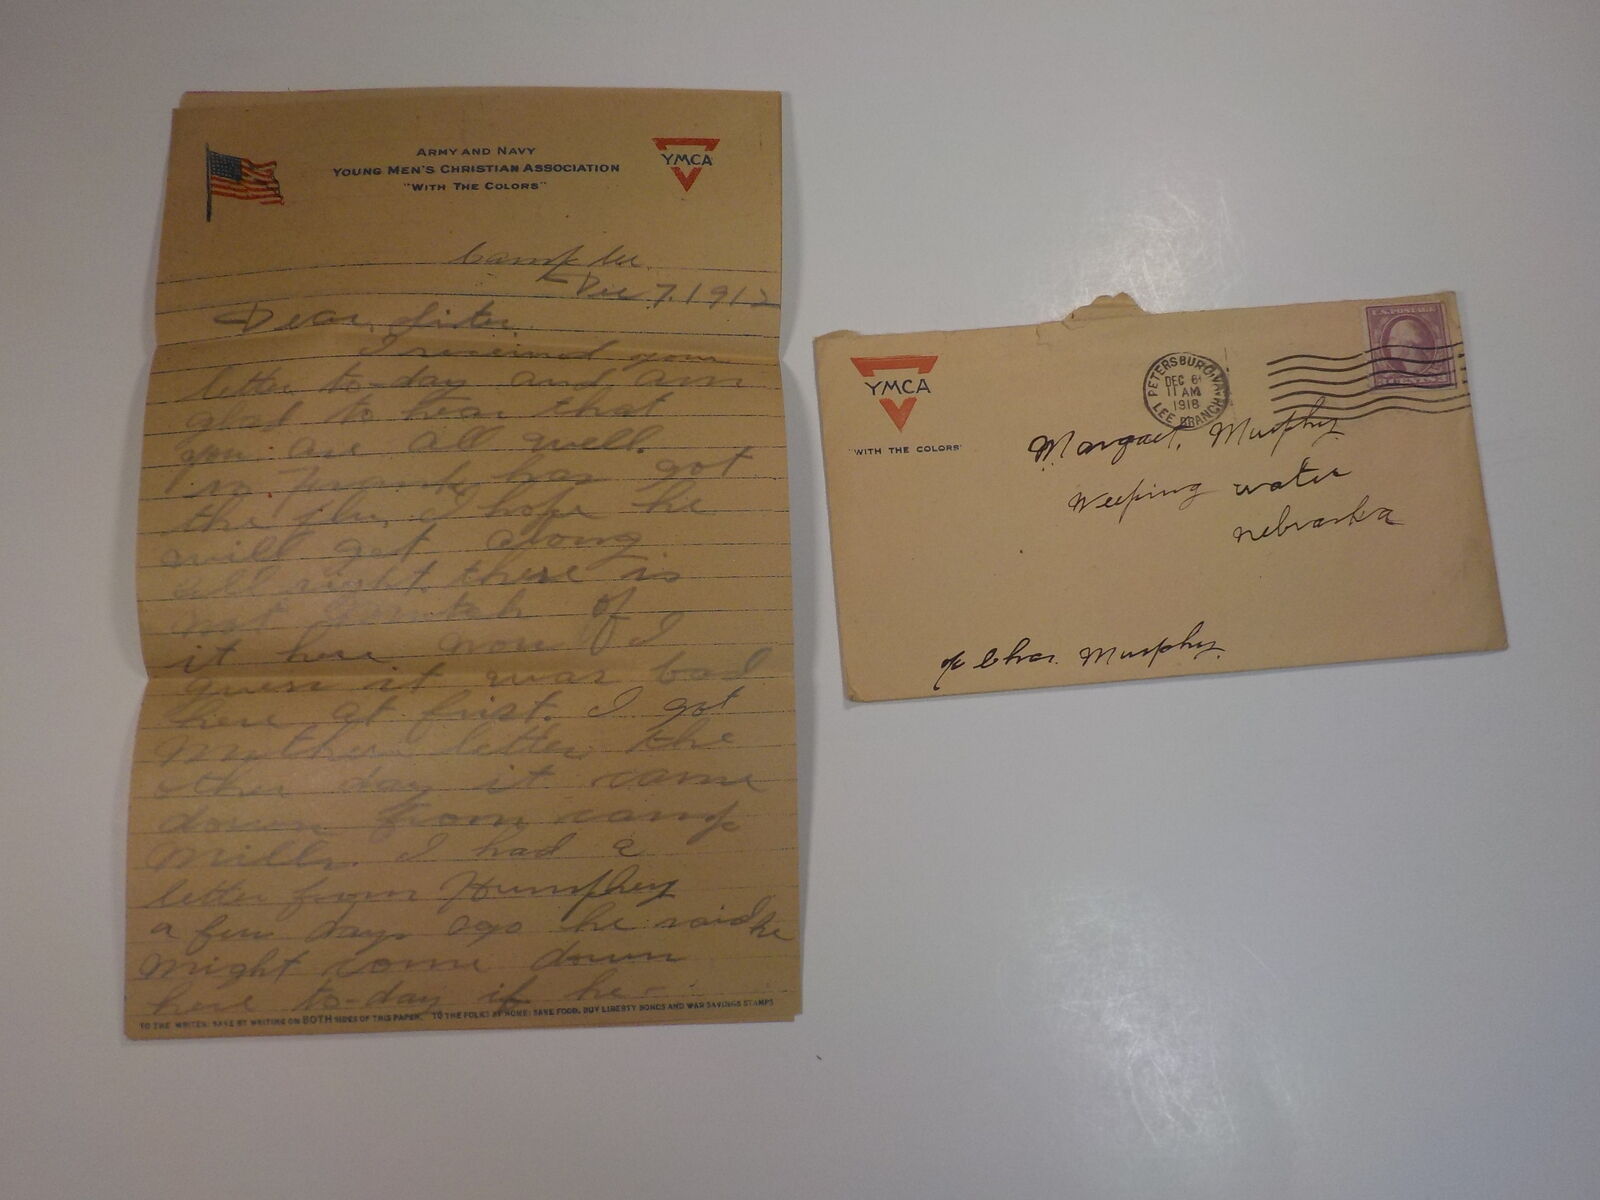 ARMY AND NAVY
YOUNG MEN'S CHRISTIAN ASSOCIATION
"WITH THE COLORS"
YMCA
Camp Lee.
Dec 7. 191
Dear Sister
I received your
letter to-day and am
glad to hear that
you are all well.
so Frank has got
the flu, I hope he
will get along
all right. there is
not of
it here now I
guess it was bad
here at first. I got
Mother letter the
other day it came
down from camp
Mills. I had a
letter from Humphey
a few days ago he said he
might come down
here to-day if he
TO THE WRITER: SAVE BY WRITING ON BOTH SIDES OF THIS PAPER. TO THE FOLKS AT HOME: SAVE FOOD, BUY LIBERTY BONDS AND WAR SAVINGS STAMPS
YMCA
"WITH THE COLORS"
PETERSBURG, VA.
DEC 6
11 AM
1918
LEE BRANCH
U.S. POSTAGE
Margaet. Murphy
Weeping water
Nebraska
c/o Chas. Murphy.